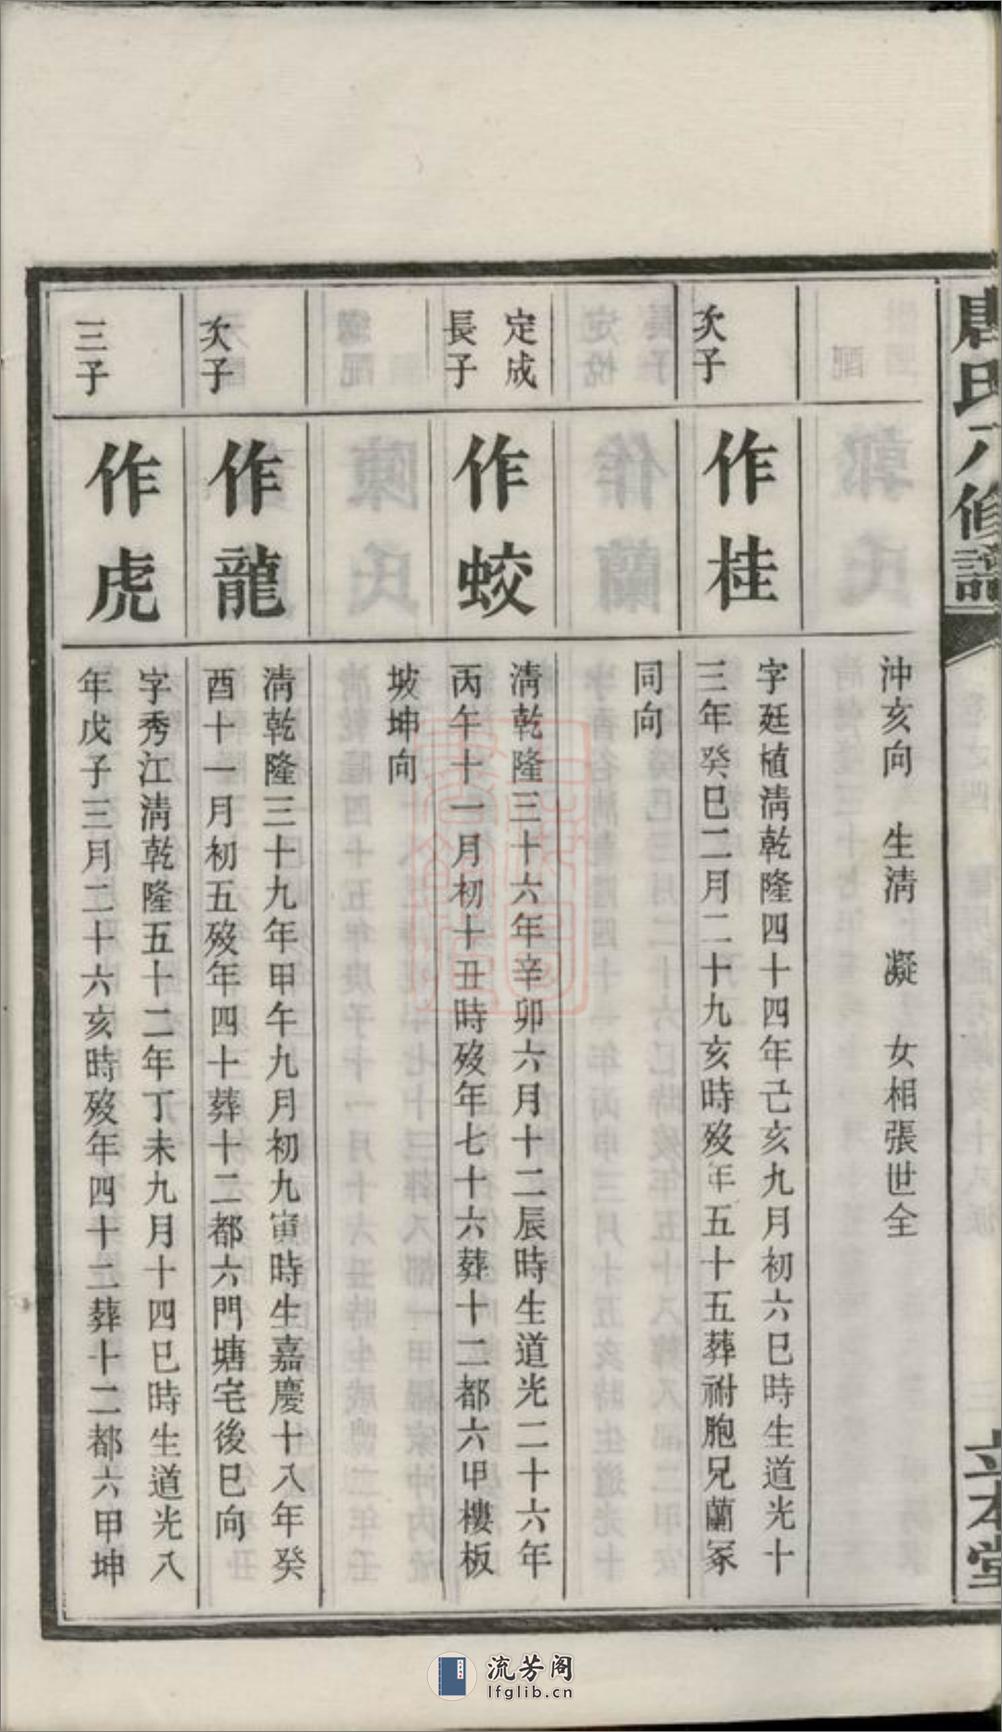 唐氏六修譜
立本堂
沖亥向　生淸　凝　女相張世全
次子
作桂
字廷植淸乾隆四十四年己亥九月初六巳時生道光十
三年癸巳二月二十九亥時歿年五十五葬祔胞兄蘭冢
同向
定成
長子
作蛟
淸乾隆三十六年辛卯六月十二辰時生道光二十六年
丙午十一月初十丑時歿年七十六葬十二都六甲樓板
坡坤向
次子
作龍
淸乾隆三十九年甲午九月初九寅時生嘉慶十八年癸
酉十一月初五歿年四十葬十二都六門塘宅後巳向
三子
作虎
字秀江淸乾隆五十二年丁未九月十四巳時生道光八
年戊子三月二十六亥時歿年四十二葬十二都六甲坤
流芳阁
lfglib.cn